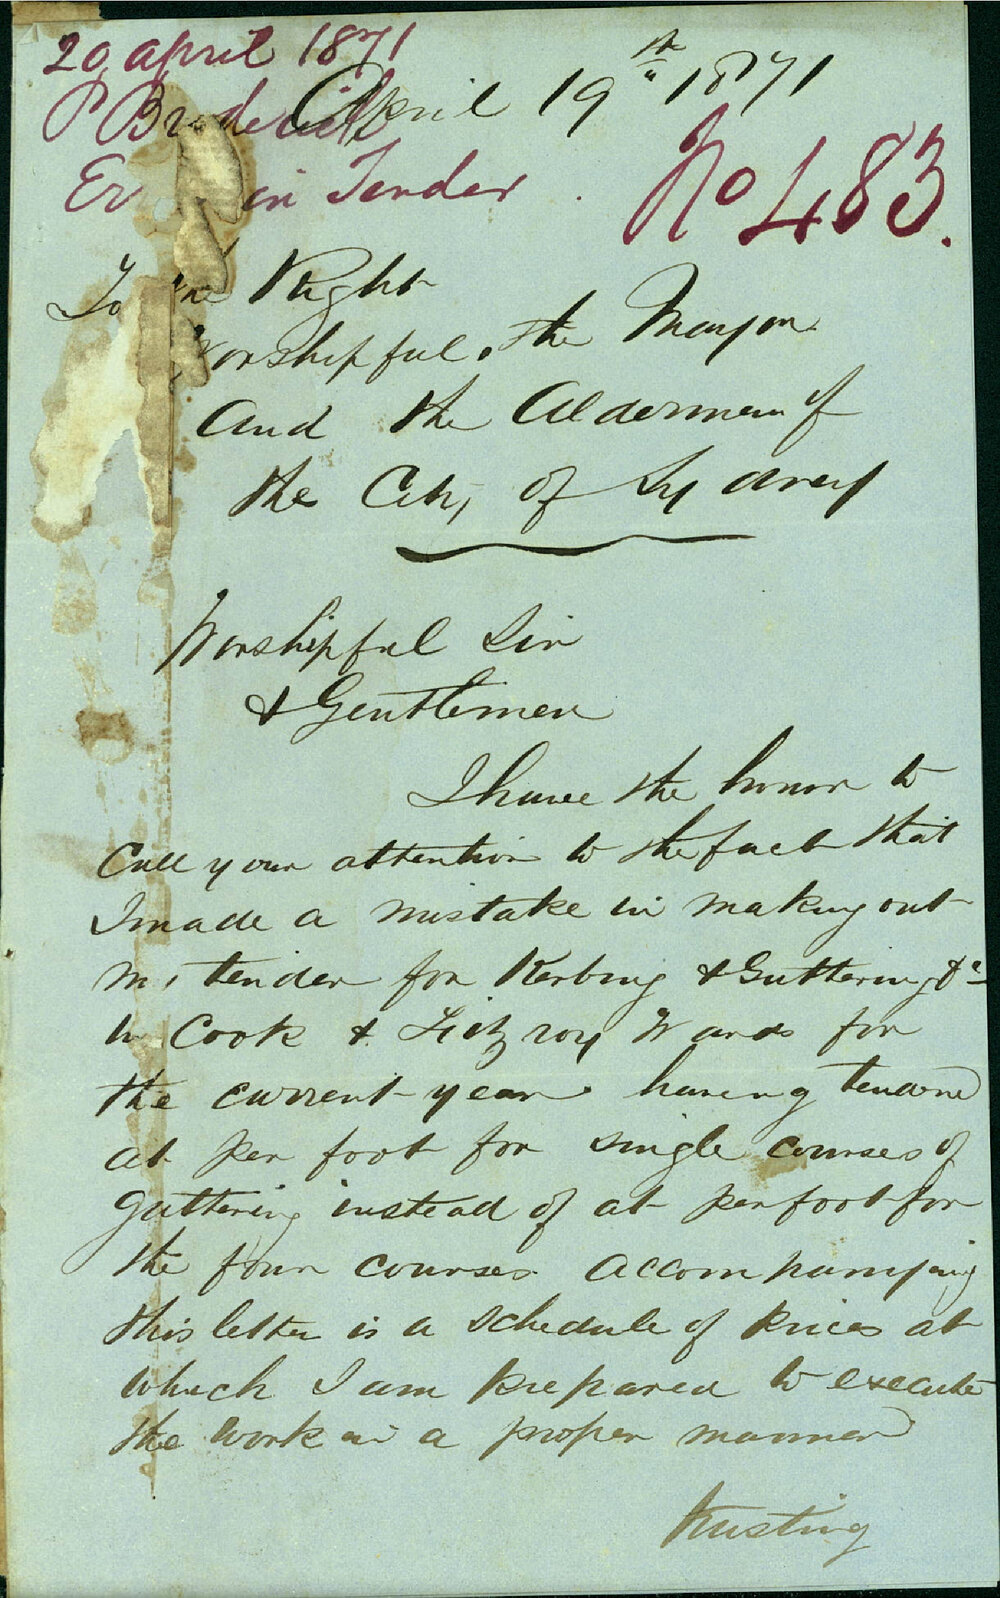 20 april 1871
P Broderick
Er in Tender
April 19th 1871
No 483.
To the Right
Worshipful. the Mayor
and the Aldermen of
the City of Sydney
Worshipful Sir
& Gentlemen
I have the honor to
Call your attention to the fact that
I made a mistake in making out
my tender for Kerbing & Guttering &c
in Cook & Fitzroy Wards for
the current year having tendered
at per foot for single courses of
guttering instead of at per foot for
the four courses accompanying
this letter is a schedule of prices at
which I am prepared to execute
the work in a proper manner
Trusting